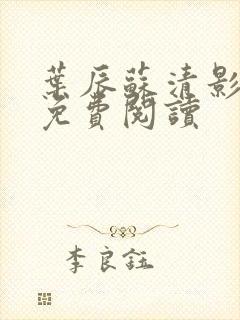 葉辰蘇清影
免費閱讀
李良鈺